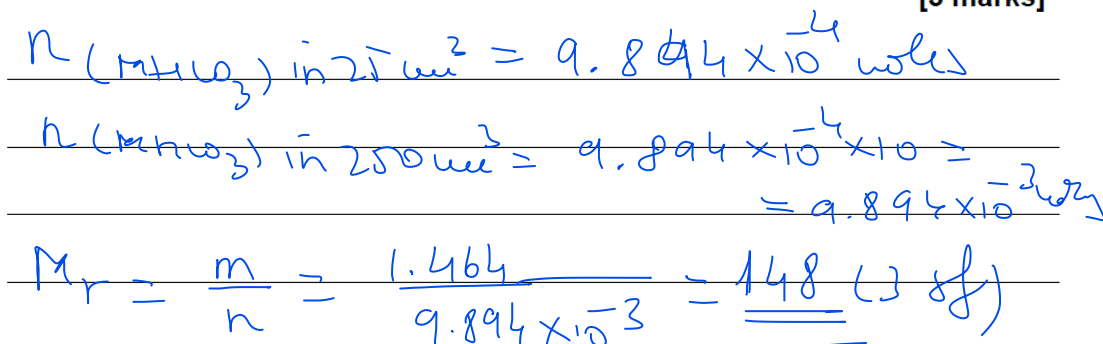 [3 marks]
n (MHCO₃) in 25 cm³ = 9.894 × 10⁻⁴ moles
n (MHCO₃) in 250 cm³ = 9.894 × 10⁻⁴ × 10 =
= 9.894 × 10⁻³ moles
Mr = m/n = 1.464/9.894 × 10⁻³ = 148 (3 sf)